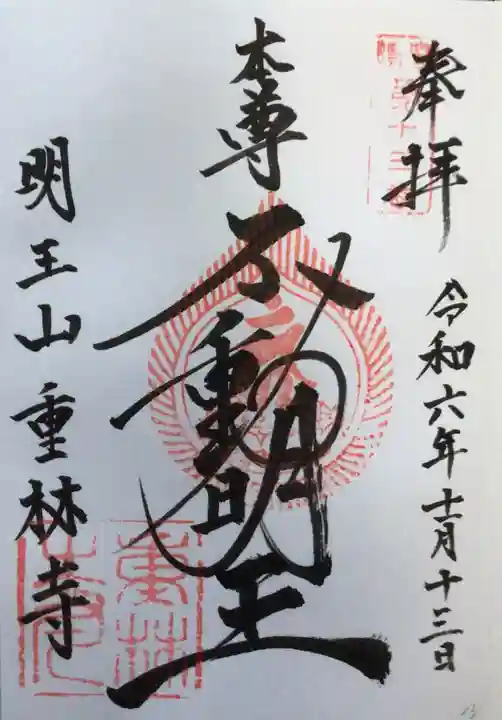 奉拝
令和六年十一月十三日
本尊
不動明王
明王山重林寺
重林